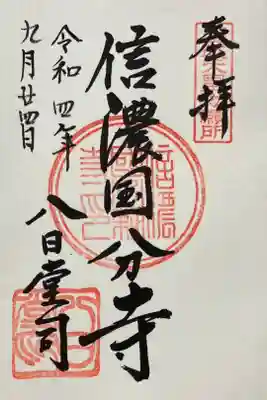 奉拝
信濃国分寺
八日堂司
令和四年
九月廿四日